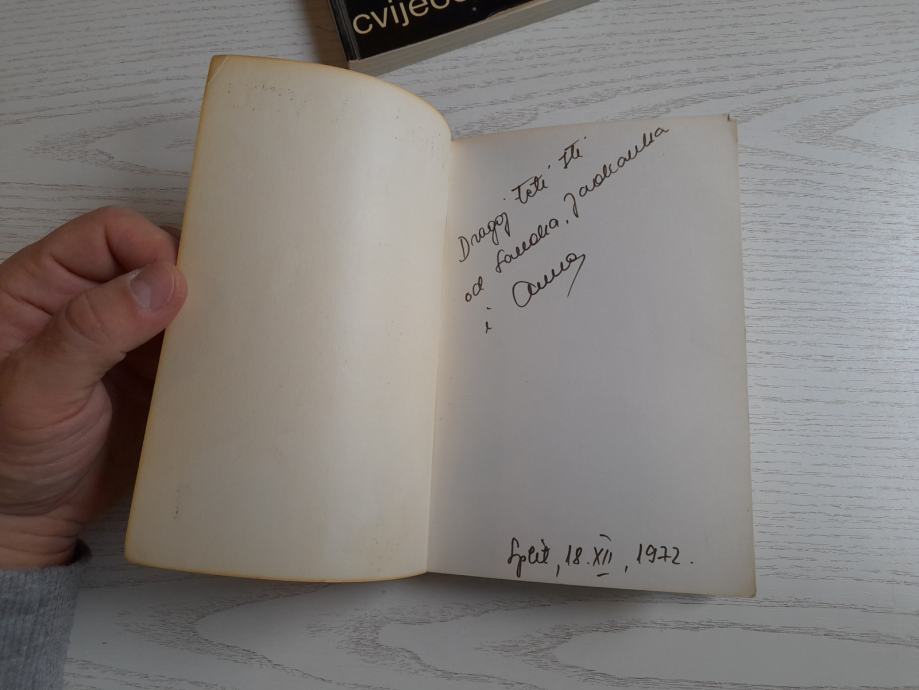 cvijeće
Dragoj Teti Iti
od Sandra, Jadranka
i Anna
Split, 18.XII, 1972.